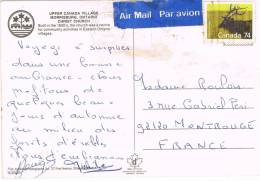 UPPER CANADA VILLAGE
MORRISBURG, ONTARIO
CHRIST CHURCH
Built in the 1830's, the church was a centre
for community activities in Eastern Ontario
villages.
Air Mail Par avion
Canada 74
Voyage surprises
dans une bonne
ambiance. Nous
profitons de
quelques beaux
jours d'automne
au milieu des
forêts d'érables
Nous t'embrassons
Madame Poulou
3 rue Gabriel Péri
92120 MONTROUGE
FRANCE